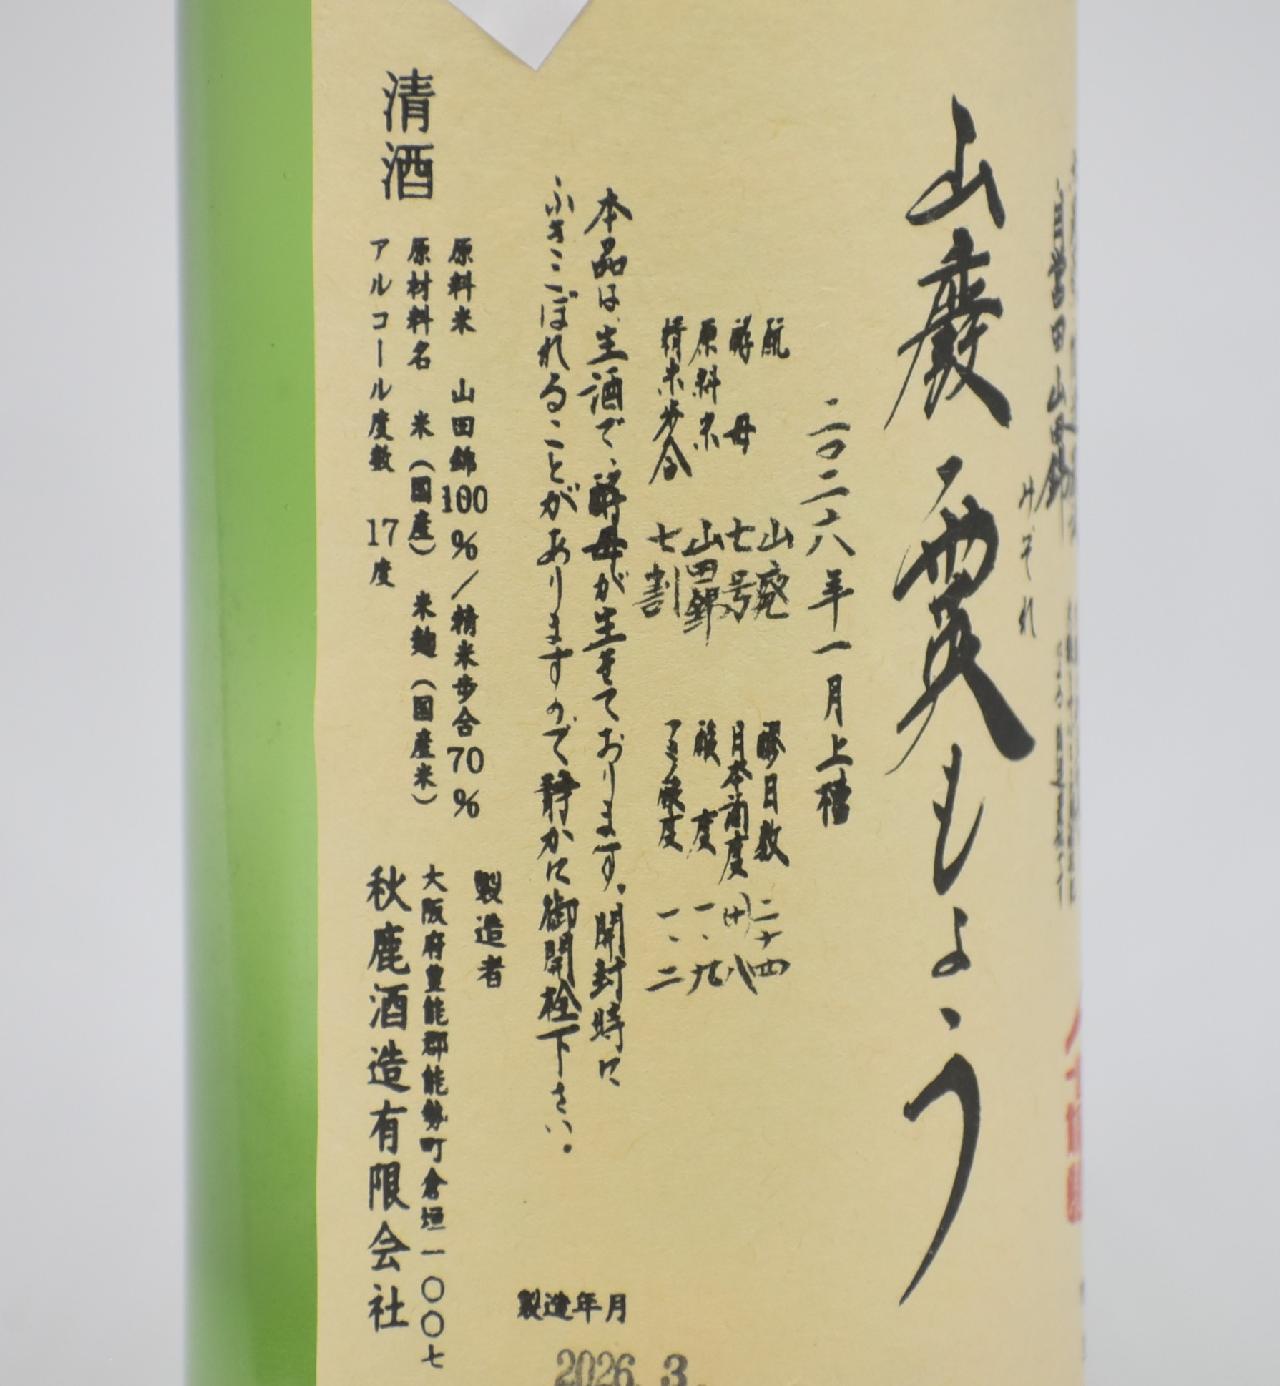 自営田山田錦
みぞれ
山廢 霙もよう
二〇二六年一月上槽
酛 山廃 醪日数 二十四
酵母 七号 日本酒度 (+)八
原料米 山田錦 酸度 一、九
精米歩合 七割 アミノ酸度 一、二
本品は、生酒で、酵母が生きております。開封時に
ふきこぼれることがありますので静かに御開栓下さい。
製造年月
2026. 3.
清酒
原料米 山田錦100%/精米歩合70%
原材料名 米(国産) 米麹(国産米)
アルコール度数 17度
製造者
大阪府豊能郡能勢町倉垣一〇〇七
秋鹿酒造有限会社